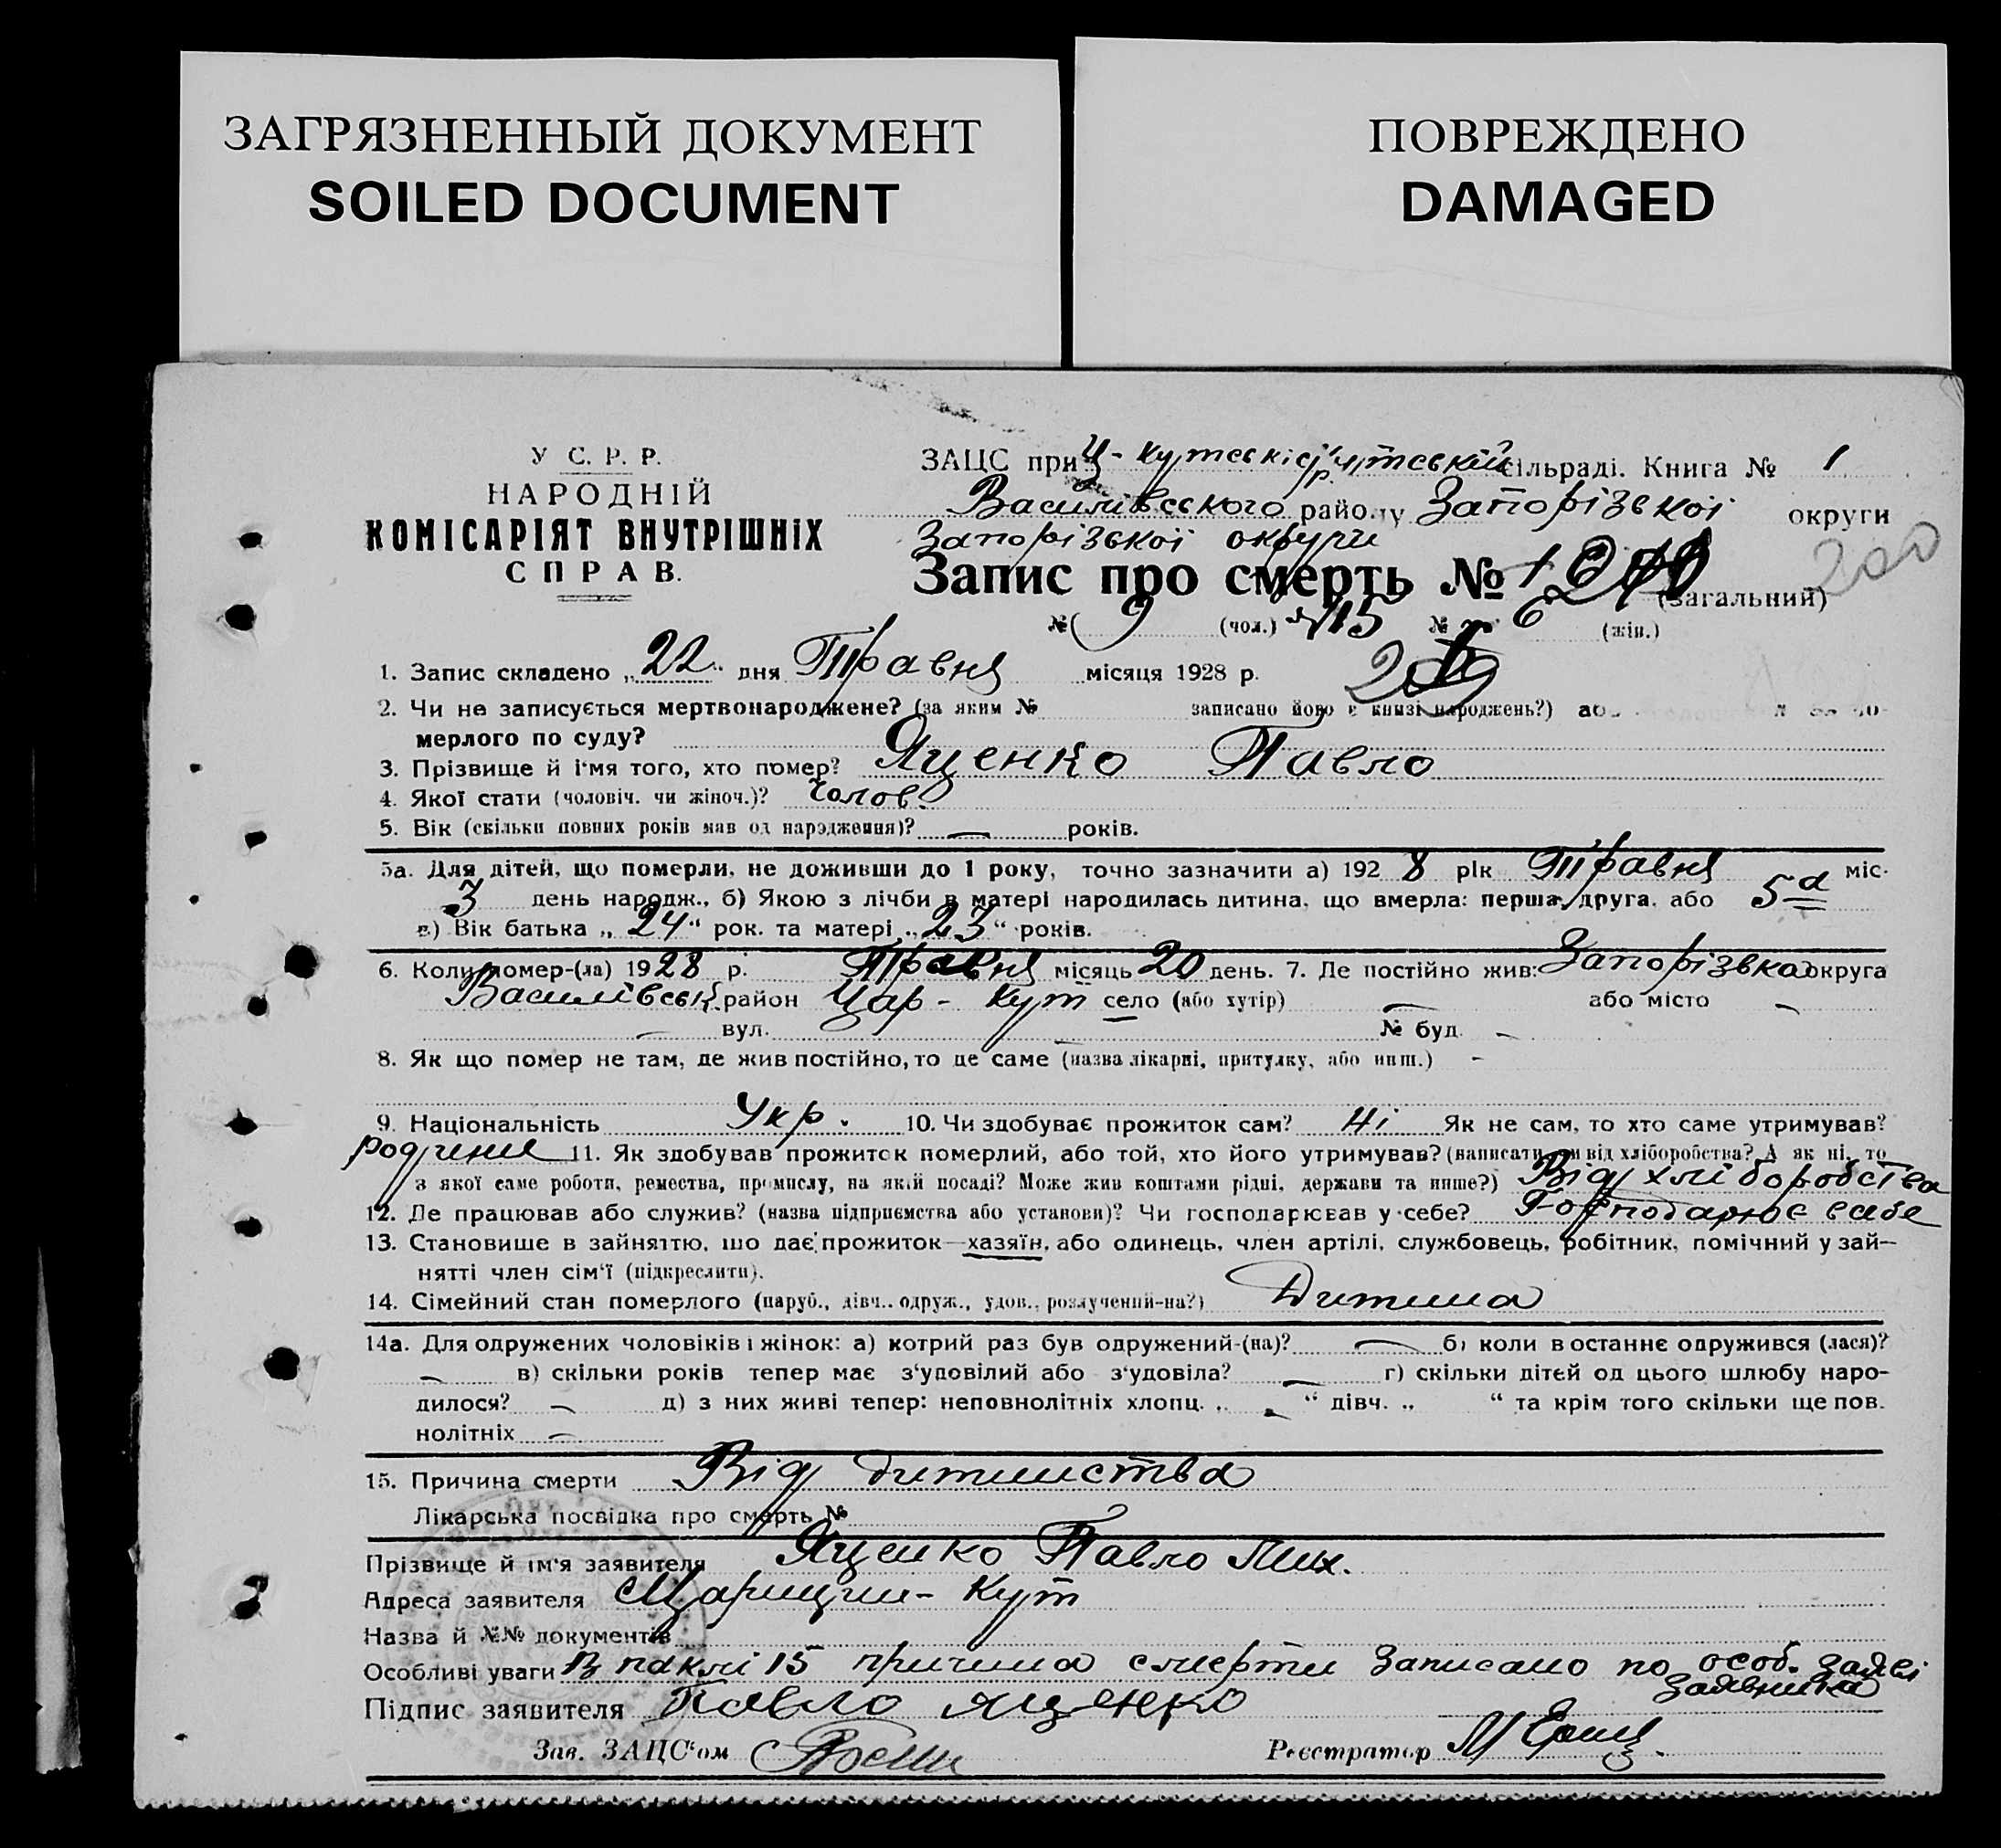 ЗАГРЯЗНЕННЫЙ ДОКУМЕНТ
SOILED DOCUMENT
ПОВРЕЖДЕНО
DAMAGED
У С. Р. Р.
НАРОДНІЙ
КОМІСАРІЯТ ВНУТРІШНІХ
СПРАВ.
ЗАЦС при Ц-Кутській сільраді. Книга № 1
Василівського району Запорізької округи
Запорізької округи
Запис про смерть №
(загальний)
200
№ 9 (чол.) № 6 (жін.)
1. Запис складено „22" дня Травня місяця 1928 р.
2. Чи не записується мертвонароджене? (за яким № записано його в книзі народжень?)
мерлого по суду?
3. Прізвище й ім'я того, хто помер? Яценко Павло
4. Якої стати (чоловіч. чи жіноч.)? Чолов.
5. Вік (скільки повних років мав од народження)? — років.
5а. Для дітей, що померли, не доживши до 1 року, точно зазначити а) 1928 рік Травня міс.
3 день народж., б) Якою з лічби в матері народилась дитина, що вмерла: перша, друга, або 5а
в) Вік батька „24" рок. та матері „23" років.
6. Коли помер-(ла) 1928 р. Травня місяць 20 день. 7. Де постійно жив: Запорізька округа
Василівськ. район Цар-Кут село (або хутір) — або місто —
— вул. — № буд. -
8. Як що помер не там, де жив постійно, то де саме (назва лікарні, притулку, або инш.) -
9. Національність Укр. 10. Чи здобуває прожиток сам? Ні Як не сам, то хто саме утримував?
родичи 11. Як здобував прожиток померлий, або той, хто його утримував? (написати чи від хліборобства? А як ні, то
з якої саме роботи, ремества, промислу, на якій посаді? Може жив коштами рідні, держави та инше?) Від хліборобства
12. Де працював або служив? (назва підприємства або установи)? Чи господарював у себе? Господарює в себе
13. Становище в зайняттю, що дає прожиток—хазяїн, або одинець, член артілі, службовець, робітник, помічний у зай-
нятті член сім'ї (підкреслити).
14. Сімейний стан померлого (паруб., дівч., одруж., удов., розлучений-на?) Дитина
14а. Для одружених чоловіків і жінок: а) котрий раз був одружений-(на)? — б) коли в останнє одружився (лася)?
— в) скільки років тепер має з'удовілий або з'удовіла? — г) скільки дітей од цього шлюбу наро-
дилося? — д) з них живі тепер: неповнолітніх хлопц. „ - " дівч. „ " та крім того скільки ще пов.
нолітніх —
15. Причина смерти Від дитинства
Лікарська посвідка про смерть №
Прізвище й ім'я заявителя Яценко Павло Мих.
Адреса заявителя с Царицин-Кут
Назва й №№ документів
Особливі уваги В пункті 15 причина смерти записано по особ. заяві
заявника
Підпис заявителя Павло Яценко
Зав. ЗАЦС'ом
Реєстратор